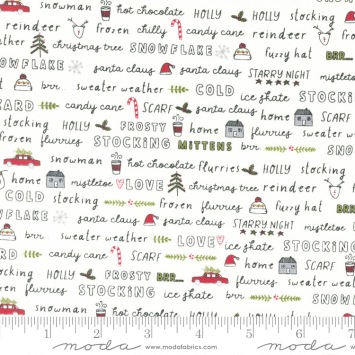 hot chocolate HOLLY stocking
reindeer frozen chilly candy cane reindeer
christmas tree SNOWFLAKE fuzzy hat
OWFLAKE santa claus santa claus BRR...
sweater weather COLD STARRY NIGHT
ARD candy cane SCARF ice skate stocking
stocking HOLLY FROSTY home flurries
frozen flurries STOCKING MITTENS
snowman hot chocolate flurries HOLLY
home mistletoe LOVE christmas tree reindeer
COLD stocking frozen fuzzy hat
OWFLAKE santa claus santa claus STARRY NIGHT mistletoe
brr. sweater weather LOVE ice skate brr.
home candy cane home SCARF
stocking HOLLY FROSTY BRR... flurries
flurries STOCKING ice skate frozen
snowman hot chocolate HOLLY stocking
1 2 3 4 5 6 7
moda www.modafabrics.com moda